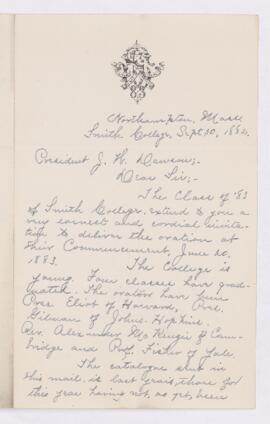 Northampton, Mass.
Smith College, Sept 30, 1882.
President J. W. Dawson;-
Dear Sir;-
The Class of '83
of Smith College, extend to you a
very earnest and cordial invita-
tion to deliver the oration at
their Commencement, June 20,
1883. The College is
young. Four classes have grad-
uated. The orators have been
Pres. Eliot of Harvard, Pres.
Gilman of Johns-Hopkins.
Rev. Alexander McKenzie of Cam-
bridge and Prof. Fisher of Yale.
The catalogue sent in
this mail, is last year's, those for
this year having not, as yet, been